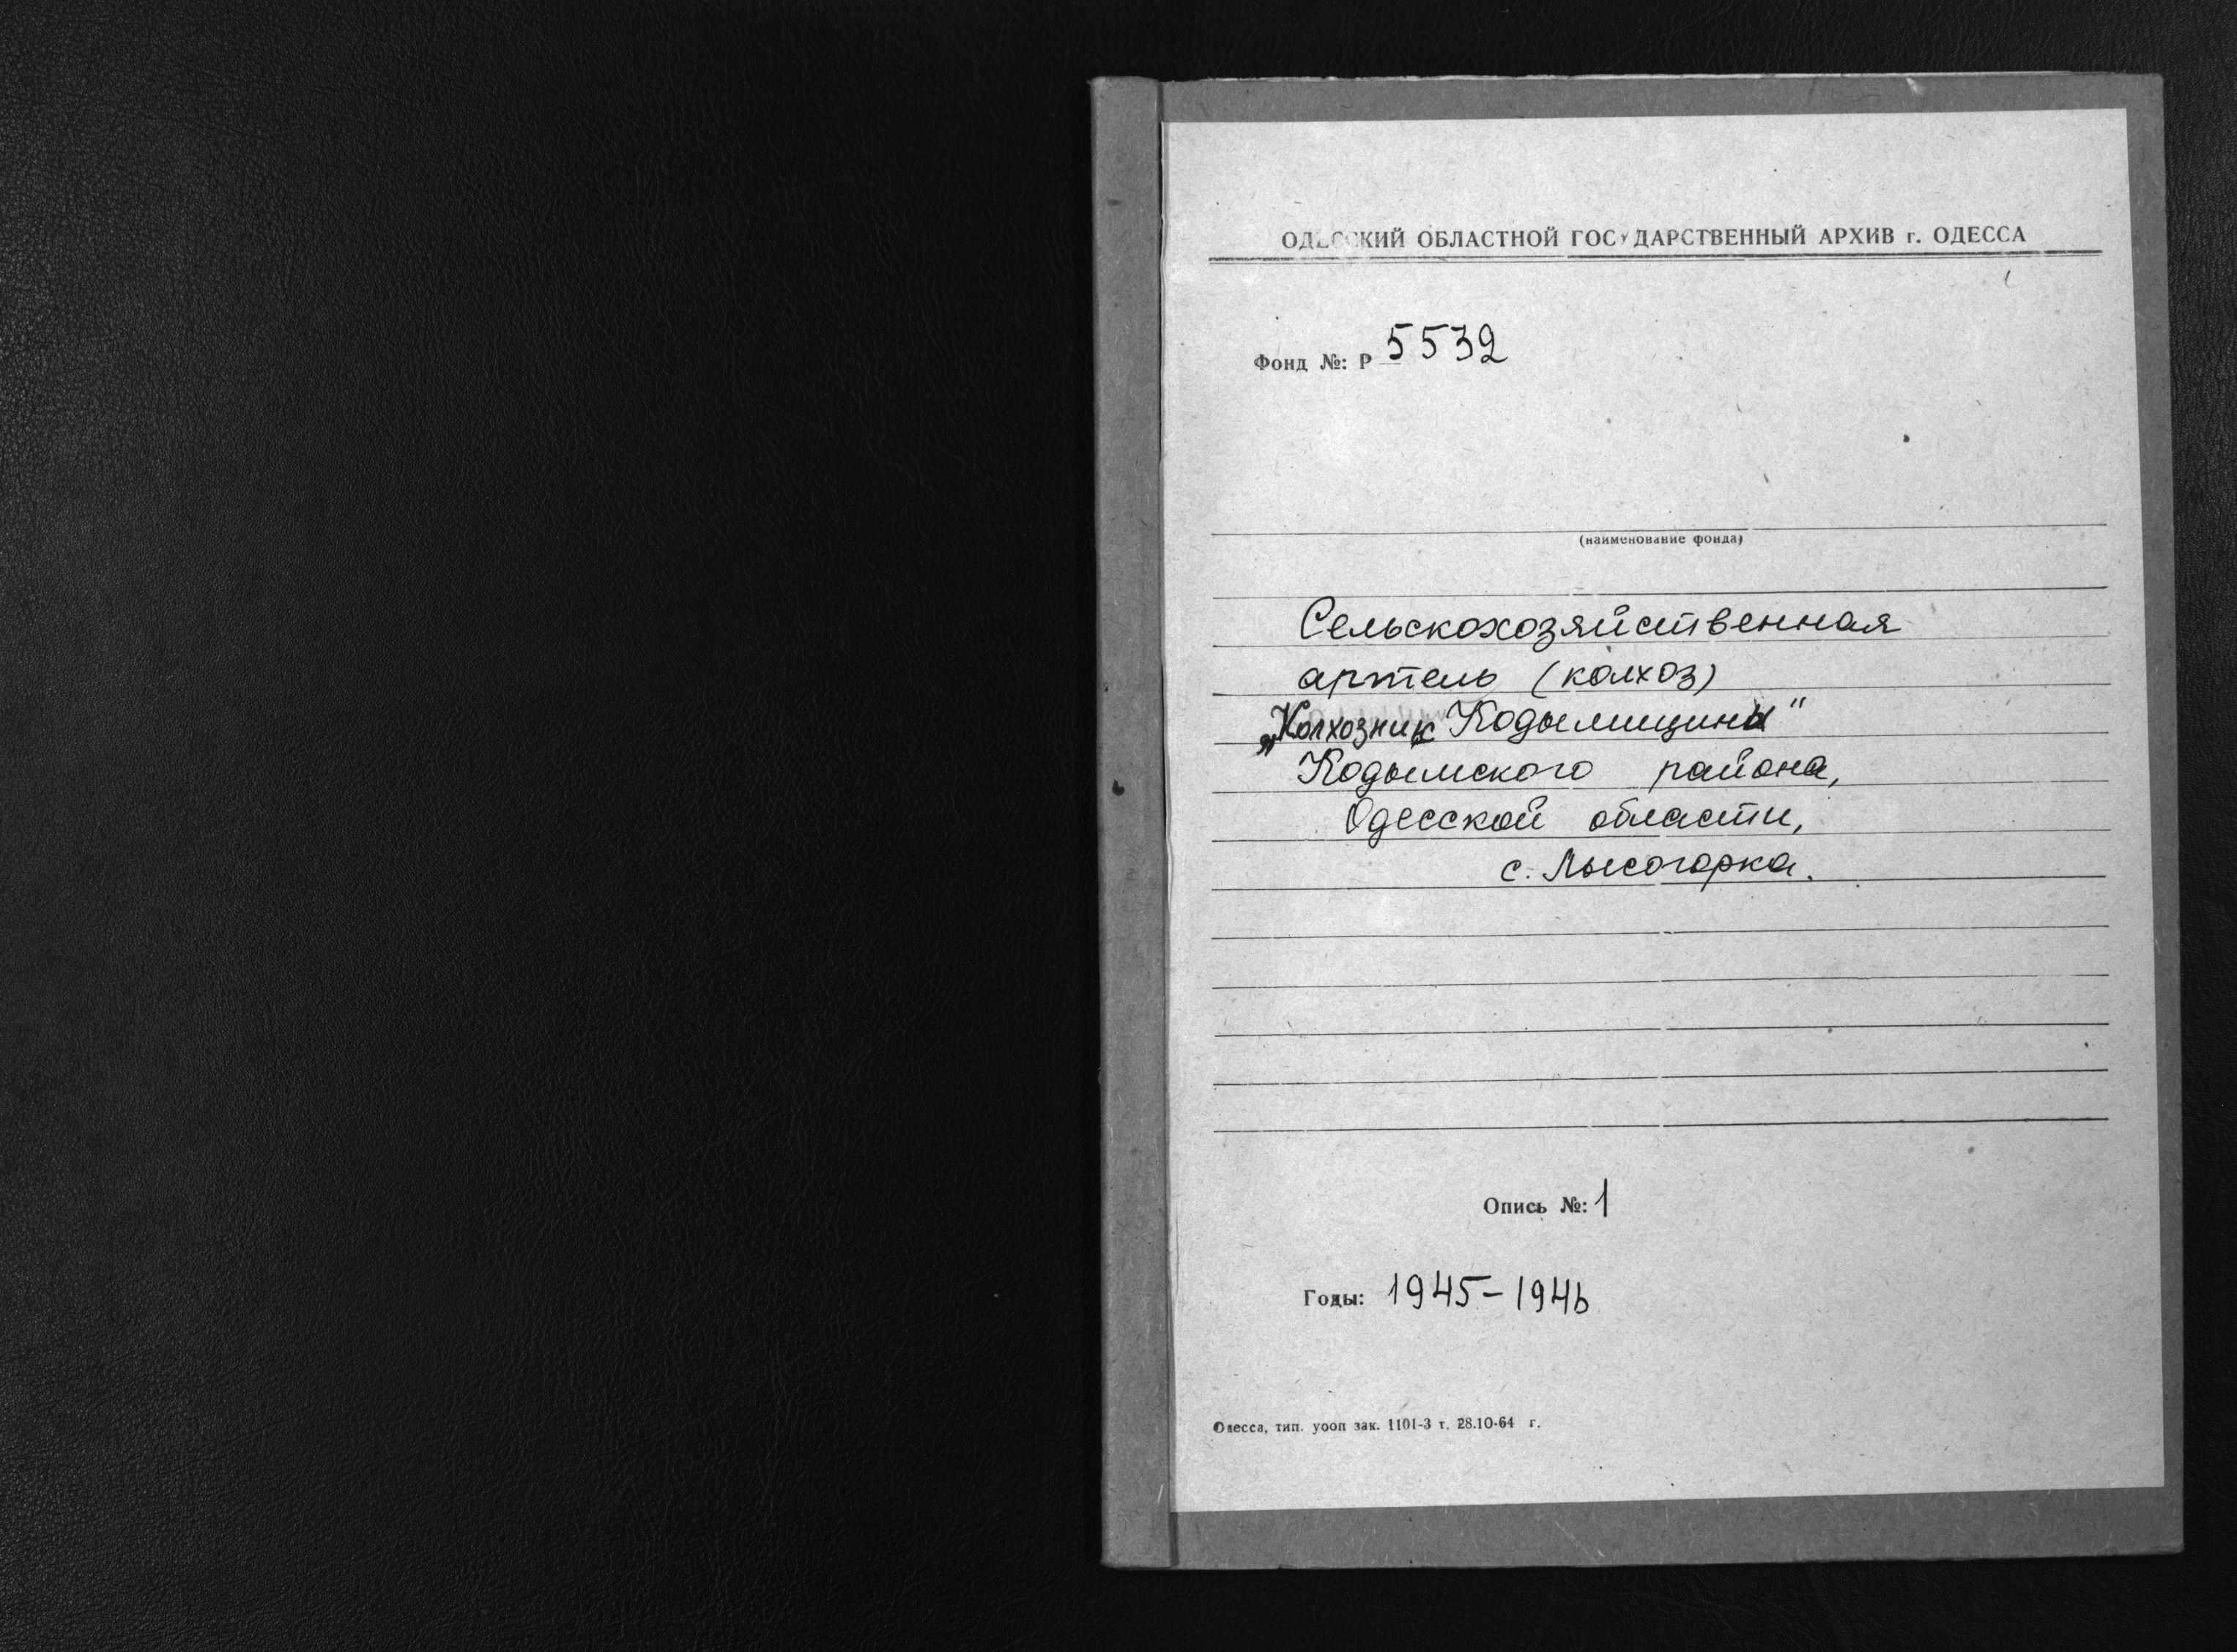 ОДЕССКИЙ ОБЛАСТНОЙ ГОСУДАРСТВЕННЫЙ АРХИВ г. ОДЕССА
Фонд №: Р 5532
(наименование фонда)
Сельскохозяйственная
артель (колхоз)
„Колхозник Кодымщины"
Кодымского района,
Одесской области,
с. Лысогорка.
Опись №: 1
Годы: 1945-1946
Одесса, тип. уооп зак. 1101-3 т. 28.10-64 г.